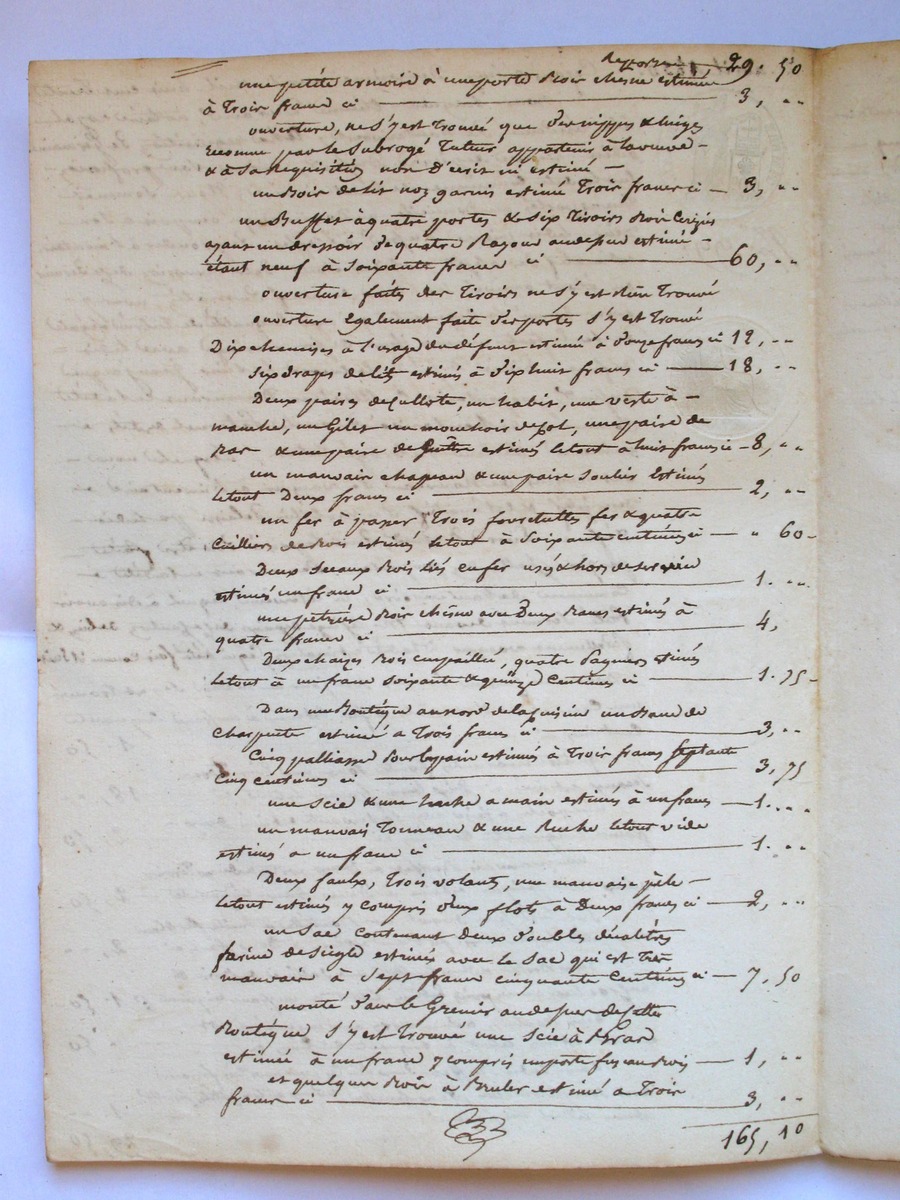 Report 29. 50
une petite armoire à une porte Bois chesne estimée
à Trois francs ci 3, ..
ouverture, ne s'y est Trouvé que des nippes & linges
reconnu par le Subrogé Tuteur appartenir à la veuve
& à Sa Requisition non D'écrit ni estimé —
un Bois de lit noz garnis estimé Trois francs ci — 3, ..
un Buffet à quatre portes & Six Tiroirs Bois Cerizié
ayant un dressoir de quatre Rayons au dessus estimé —
étant neuf à Soixante francs ci 60, ..
ouverture faite des Tiroirs ne s'y est Rien Trouvé
ouverture Egalement faite des portes s'y est Trouvé
Dix chemises à l'usage du défunt estimé à douze francs ci 12, ..
Six drapes de lits estimés à dix huit francs ci — 18, ..
Deux paires de Cullote, un habit, une veste à —
manche, un Gilet un mouchoir de Col, une paire de
Bas & une paire de Guêtre estimés le tout à huit francs ci - 8, ..
un mauvais chapeau & une paire Soulier Estimés
le tout Deux francs ci 2, ..
un fer à passer Trois fourchettes fer & quatre
Cuilliers de Bois estimés le tout à Soixante centimes ci — " 60 -
Deux Seeaux Bois liés en fer usés & hors de service
estimés un franc ci 1. ..
une petrière Bois chêne avec Deux Bancs estimés à
quatre francs ci 4,
Deux chaizes Bois empaillié, quatre Pagniers estimés
le tout à un franc Soixante & quinze Centimes ci — 1. 75 -
Dans une Boutique au nord de la Cuisine un Banc de
Charpente estimé a Trois francs ci 3, ..
Cinq palliasse Pour le pain estimés à Trois francs Septante
Cinq centimes ci 3, 75
une Scie & une hache a main estimés à un franc — 1. ..
un mauvais Tonneau & une Ruche le tout vide
estimé a un franc ci 1. ..
Deux faulx, Trois volants, une mauvaise pèle —
le tout estimés y compris deux flots à Deux francs ci — 2, ..
un Sac contenant deux doubles décalitres
farine de Seigle estimés avec le Sac qui est Tres
mauvais à Sept francs cinquante Centimes ci — 7, 50
monté dans le Grenier au dessus de cette
Boutique s'y est Trouvé une Scie à Bras
estimée à un franc y compris un porte fus en Bois — 1, ..
et quelques Bois à Bruler estimé a Trois
francs ci 3, ..
165, 10